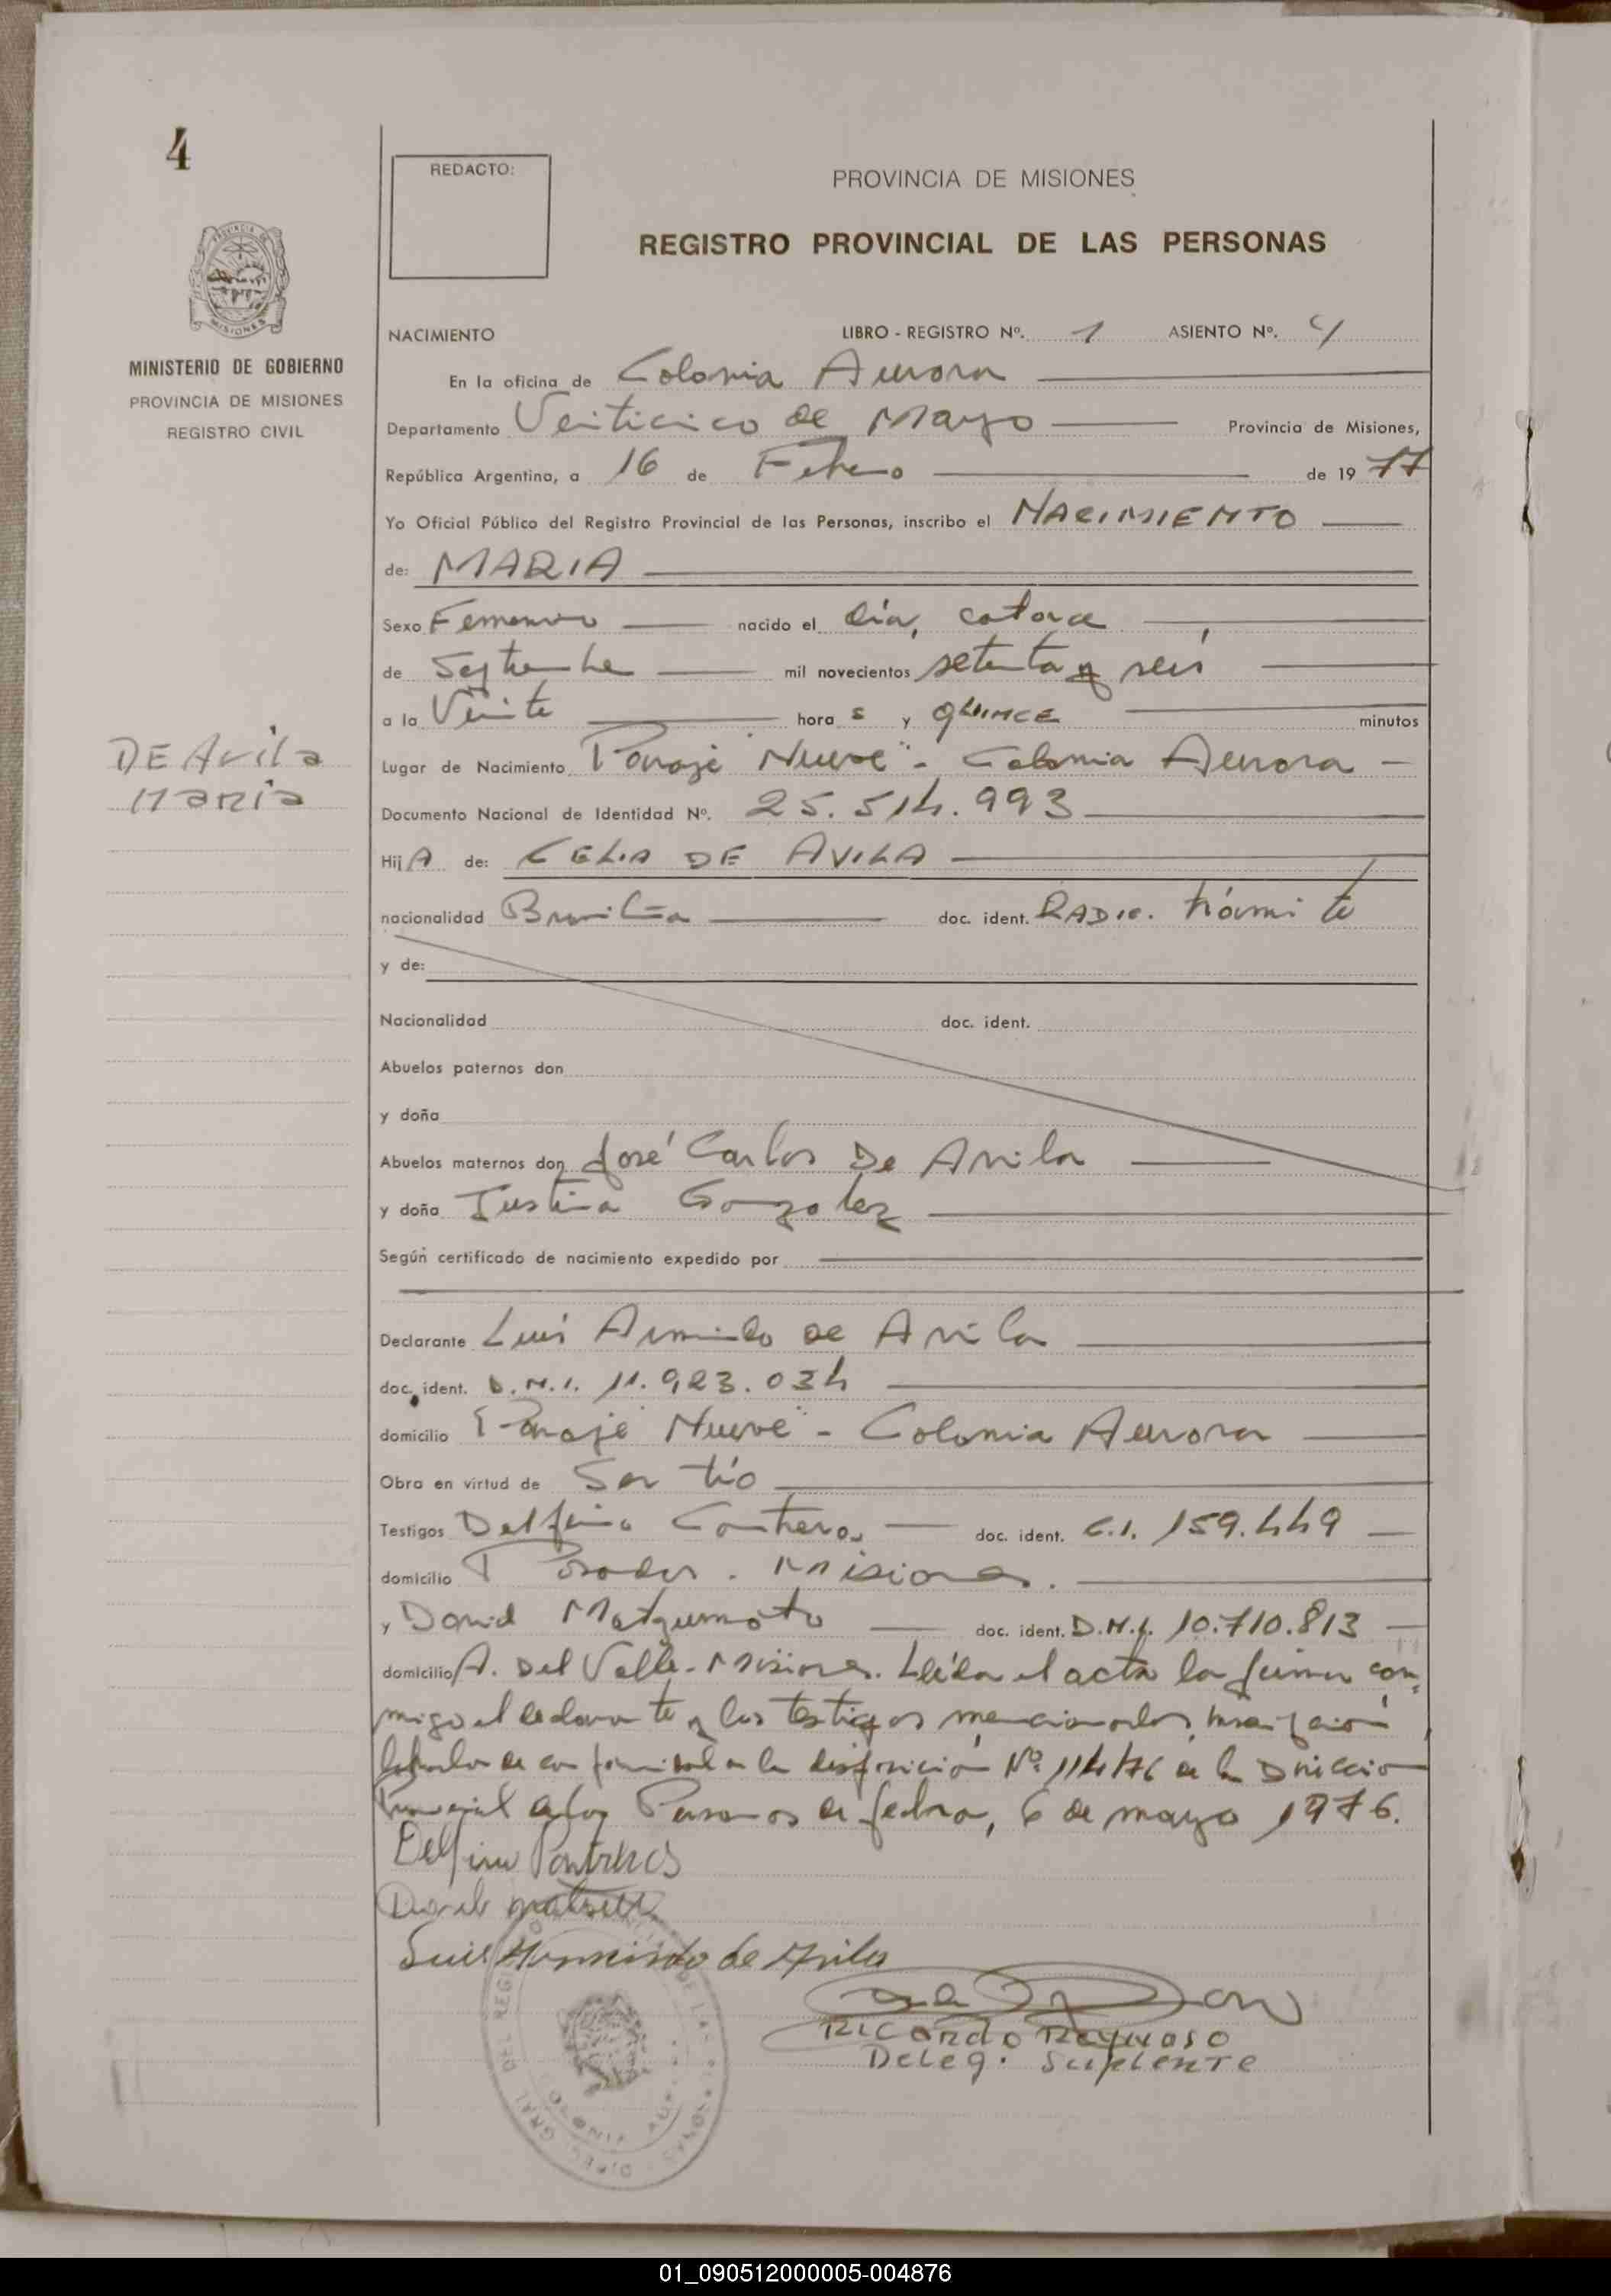 4
REDACTO:
PROVINCIA DE MISIONES
REGISTRO PROVINCIAL DE LAS PERSONAS
MINISTERIO DE GOBIERNO
PROVINCIA DE MISIONES
REGISTRO CIVIL
NACIMIENTO LIBRO - REGISTRO Nº. 1 ASIENTO Nº. 4
En la oficina de Colonia Aurora
Departamento Veiticico de Mayo Provincia de Misiones,
República Argentina, a 16 de Febrero de 19 77
Yo Oficial Público del Registro Provincial de las Personas, inscribo el NACIMIENTO
de: MARIA
Sexo Femenino nacido el día, catorce
de Septiembre mil novecientos setenta y seis
a la Veinte hora s y QUINCE minutos
DE Avila
Maria
Lugar de Nacimiento Paraje "Nueve" - Colonia Aurora
Documento Nacional de Identidad Nº. 25.514.993
Hij A de: CELIA DE AVILA
nacionalidad Brasileña doc. ident. RADIC. trámite
y de:
Nacionalidad doc. ident.
Abuelos paternos don
y doña
Abuelos maternos don José Carlos De Avila
y doña Justina Gonzalez
Según certificado de nacimiento expedido por
Declarante Luis Armindo de Avila
doc. ident. D.N.I. 11.923.034
domicilio Paraje "Nueve" - Colonia Aurora
Obra en virtud de Ser tío
Testigos Delfino Contreras doc. ident. C.I. 159.449
domicilio Posadas - Misiones.
y David Matzumoto doc. ident. D.N.I. 10.710.813
domicilio A. Del Valle - Misiones. Leída el acta la firman con-
migo el declarante y los testigos mencionados, inscripción
labrada de conformidad a la disposición Nº 114/76 de la Dirección
Provincial de las Personas de fecha, 6 de mayo 1976.
Delfino Contreras
Luis Armindo de Avila
RICARDO Reynoso
Deleg. Suplente
01_090512000005-004876